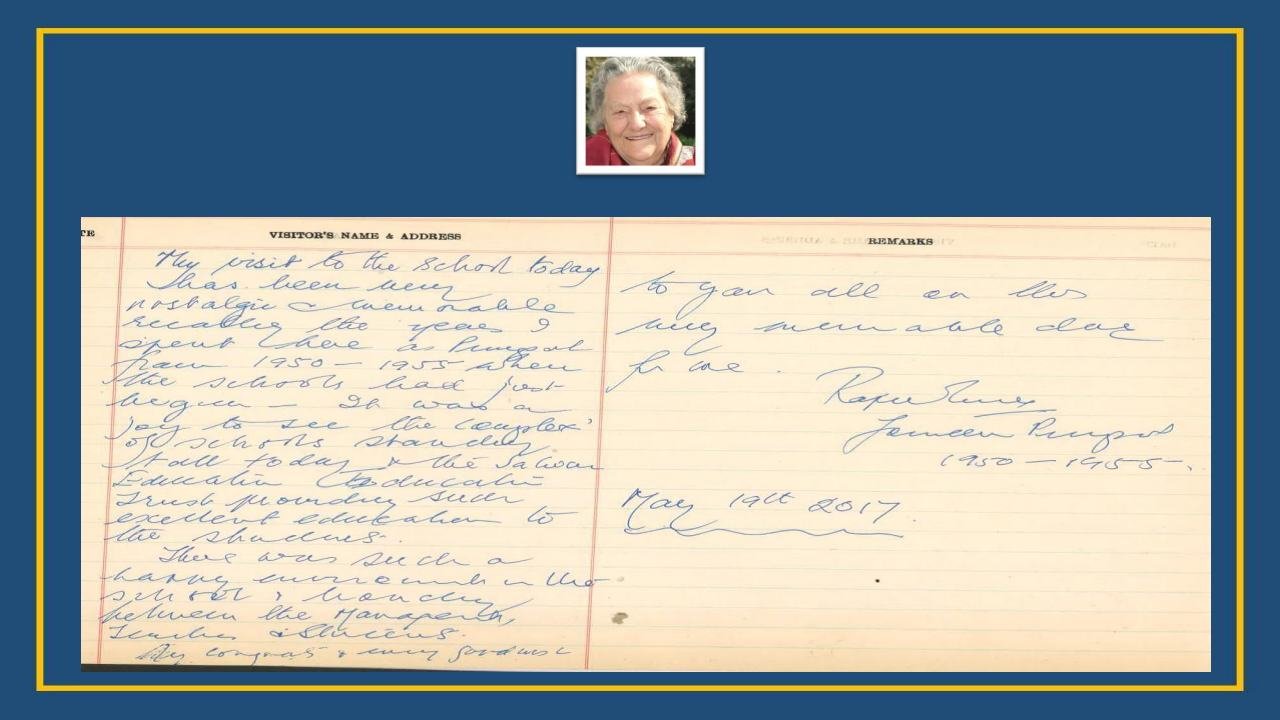 TE
VISITOR'S NAME & ADDRESS
My visit to the School today
has been very
nostalgic & memorable
recalling the years I
spent here as Principal
from 1950 – 1955 when
the schools had just
begun – It was a
joy to see the complex
of schools standing
tall today & the
Education
Trust providing such
excellent education to
the students.
There was such a
happy environment in the
school &
between the Management,
Teachers & Students.
My congrats & every good wish
REMARKS
to you all on this
very memorable day
for me.
Principal
1950 – 1955.
May 19th 2017.